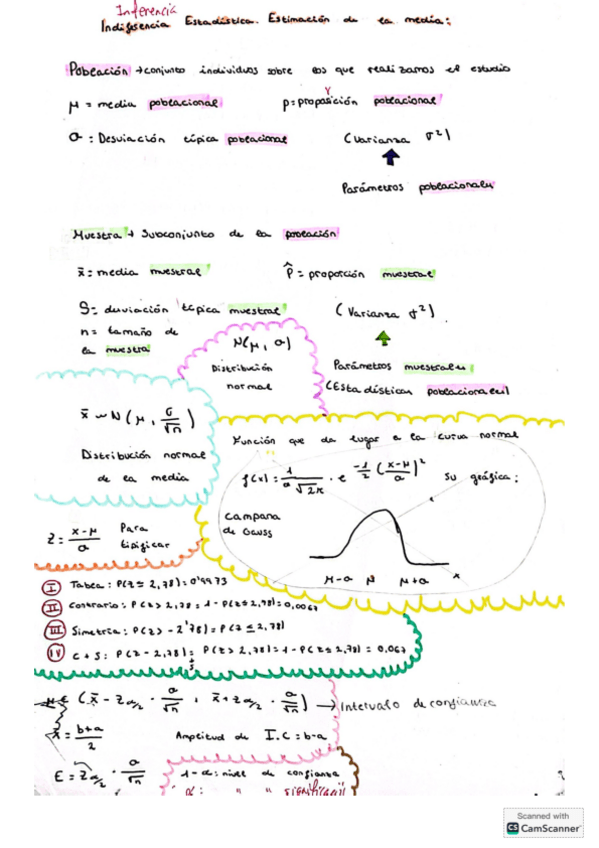 Inferencia
Indiferencia Estadística. Estimación de la media:
Población → conjunto individuos sobre los que realizamos el estudio
μ = media poblacional
p = proposición poblacional
σ : Desviación típica poblacional
(Varianza σ²)
Parámetros poblacionales
Muestra → Subconjunto de la población
x̄ = media muestral
p̂ = proporción muestral
S = desviación típica muestral
(Varianza σ²)
n = tamaño de
la muestra
N(μ, σ)
Distribución
normal
Parámetros muestrales
(Estadísticos poblacionales)
x̄ ~ N(μ, σ/√n)
Distribución normal
de la media
Función que da lugar a la curva normal
f(x) = 1/(σ√2π) · e^(-1/2 ((x-μ)/σ)²)
Su gráfica:
Campana
de Gauss
μ-σ μ μ+σ x
Z = (x-μ)/σ
Para
tipificar
I Tabla: P(Z ≤ 2,78) = 0'9973
II Contrario: P(Z > 2,78 = 1 - P(Z ≤ 2,78) = 0,0067
III Simetría: P(Z > -2'78) = P(Z ≤ 2,78)
IV C + S: P(Z - 2,78) = P(Z > 2,78) = 1 - P(Z ≤ 2,78) = 0,067
μ ∈ (x̄ - Zα/2 · σ/√n , x̄ + Zα/2 · σ/√n) → Intervalo de confianza
x̄ = (b+a)/2
Amplitud de I.C = b-a
E = Zα/2 · σ/√n
1-α: nivel de confianza
α: " "
Scanned with
CS CamScanner